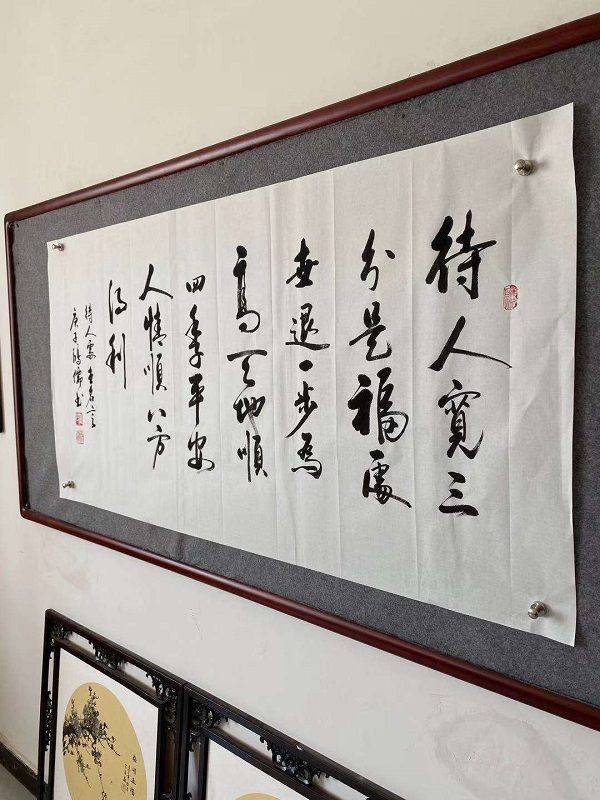 待人寬三
分是福處
世退一步為
高天地順
四季平安
人情順八方
得利
待人處世名言
庚子鴻儒書